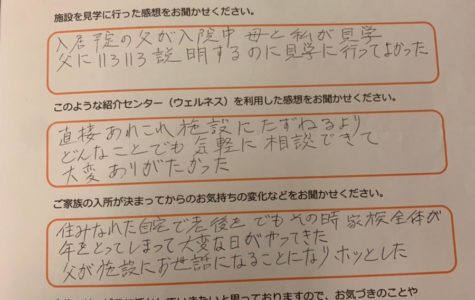 施設を見学に行った感想をお聞かせください。
入居予定の父が入院中 母と私が見学
父にいろいろ説明するのに見学に行ってよかった
このような紹介センター（ウェルネス）を利用した感想をお聞かせください。
直接あれこれ施設にたずねるより
どんなことでも気軽に相談できて
大変ありがたかった
ご家族の入所が決まってからのお気持ちの変化などをお聞かせください。
住みなれた自宅で老後を でもその時家族全体が
年をとってしまって大変な日がやってきた
父が施設にお世話になることになりホッとした
していきたいと思っておりますので、お気づきのことや